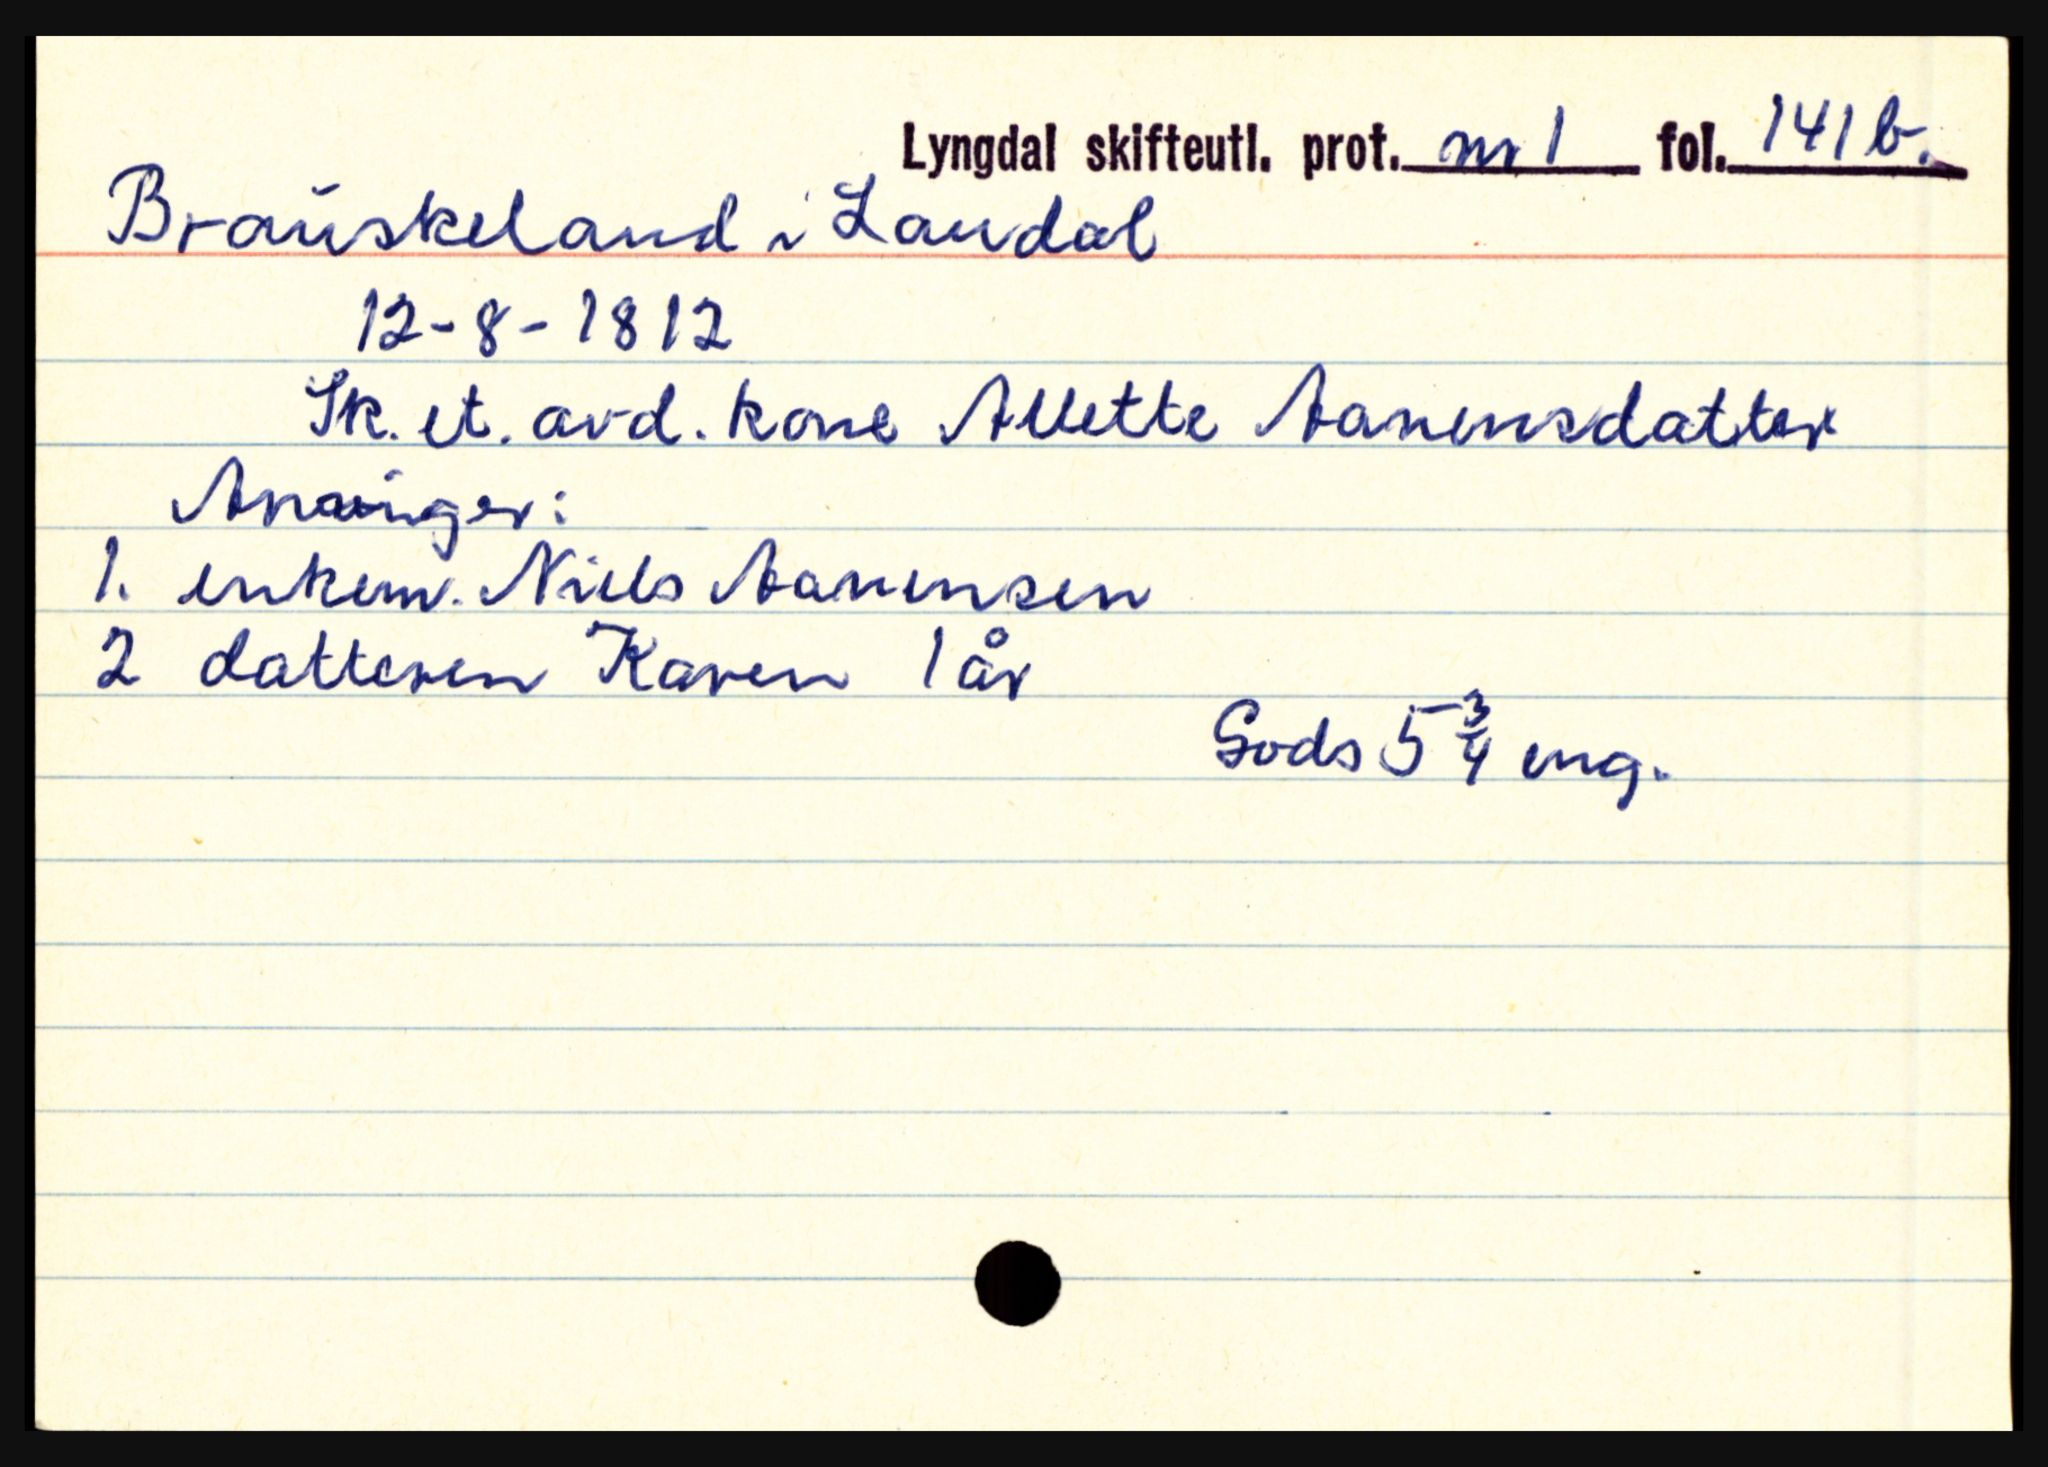 Lyngdal skifteutl. prot. nr 1 fol. 141 b.
Brauskeland i Laudal
12-8-1812
Sk. et. avd. kone Allette Aanensdatter
Arvinger:
1. enkem. Niels Aanensen
2 datteren Karen 1 år
Gods 5 3/4 eng.